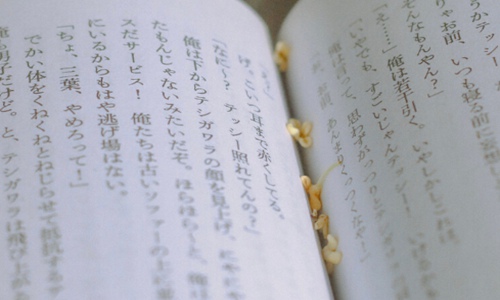 うかテッシー
りゃお前、いつも寝る前に妄想し
そんなもんやん？」
「え……」俺は若干引く。いやしかしこれは、
「いやでも、すごいじゃんテッシー！
け。こいつ耳まで赤くしてる。
「なに～？　テッシー照れてんの？」
俺は下からテシガワラの顔を見上げ、にやにや
たもんじゃないみたいだぞ。ほらほら～と、俺は
スだサービス！　俺たちは古いソファーの上に並
にいるからもはや逃げ場はない。
「ちょ、三葉、やめろって！」
でかい体をくねくねとねじらせて抵抗するテ
俺も男子だけど。と、テシガワラは飛び上が